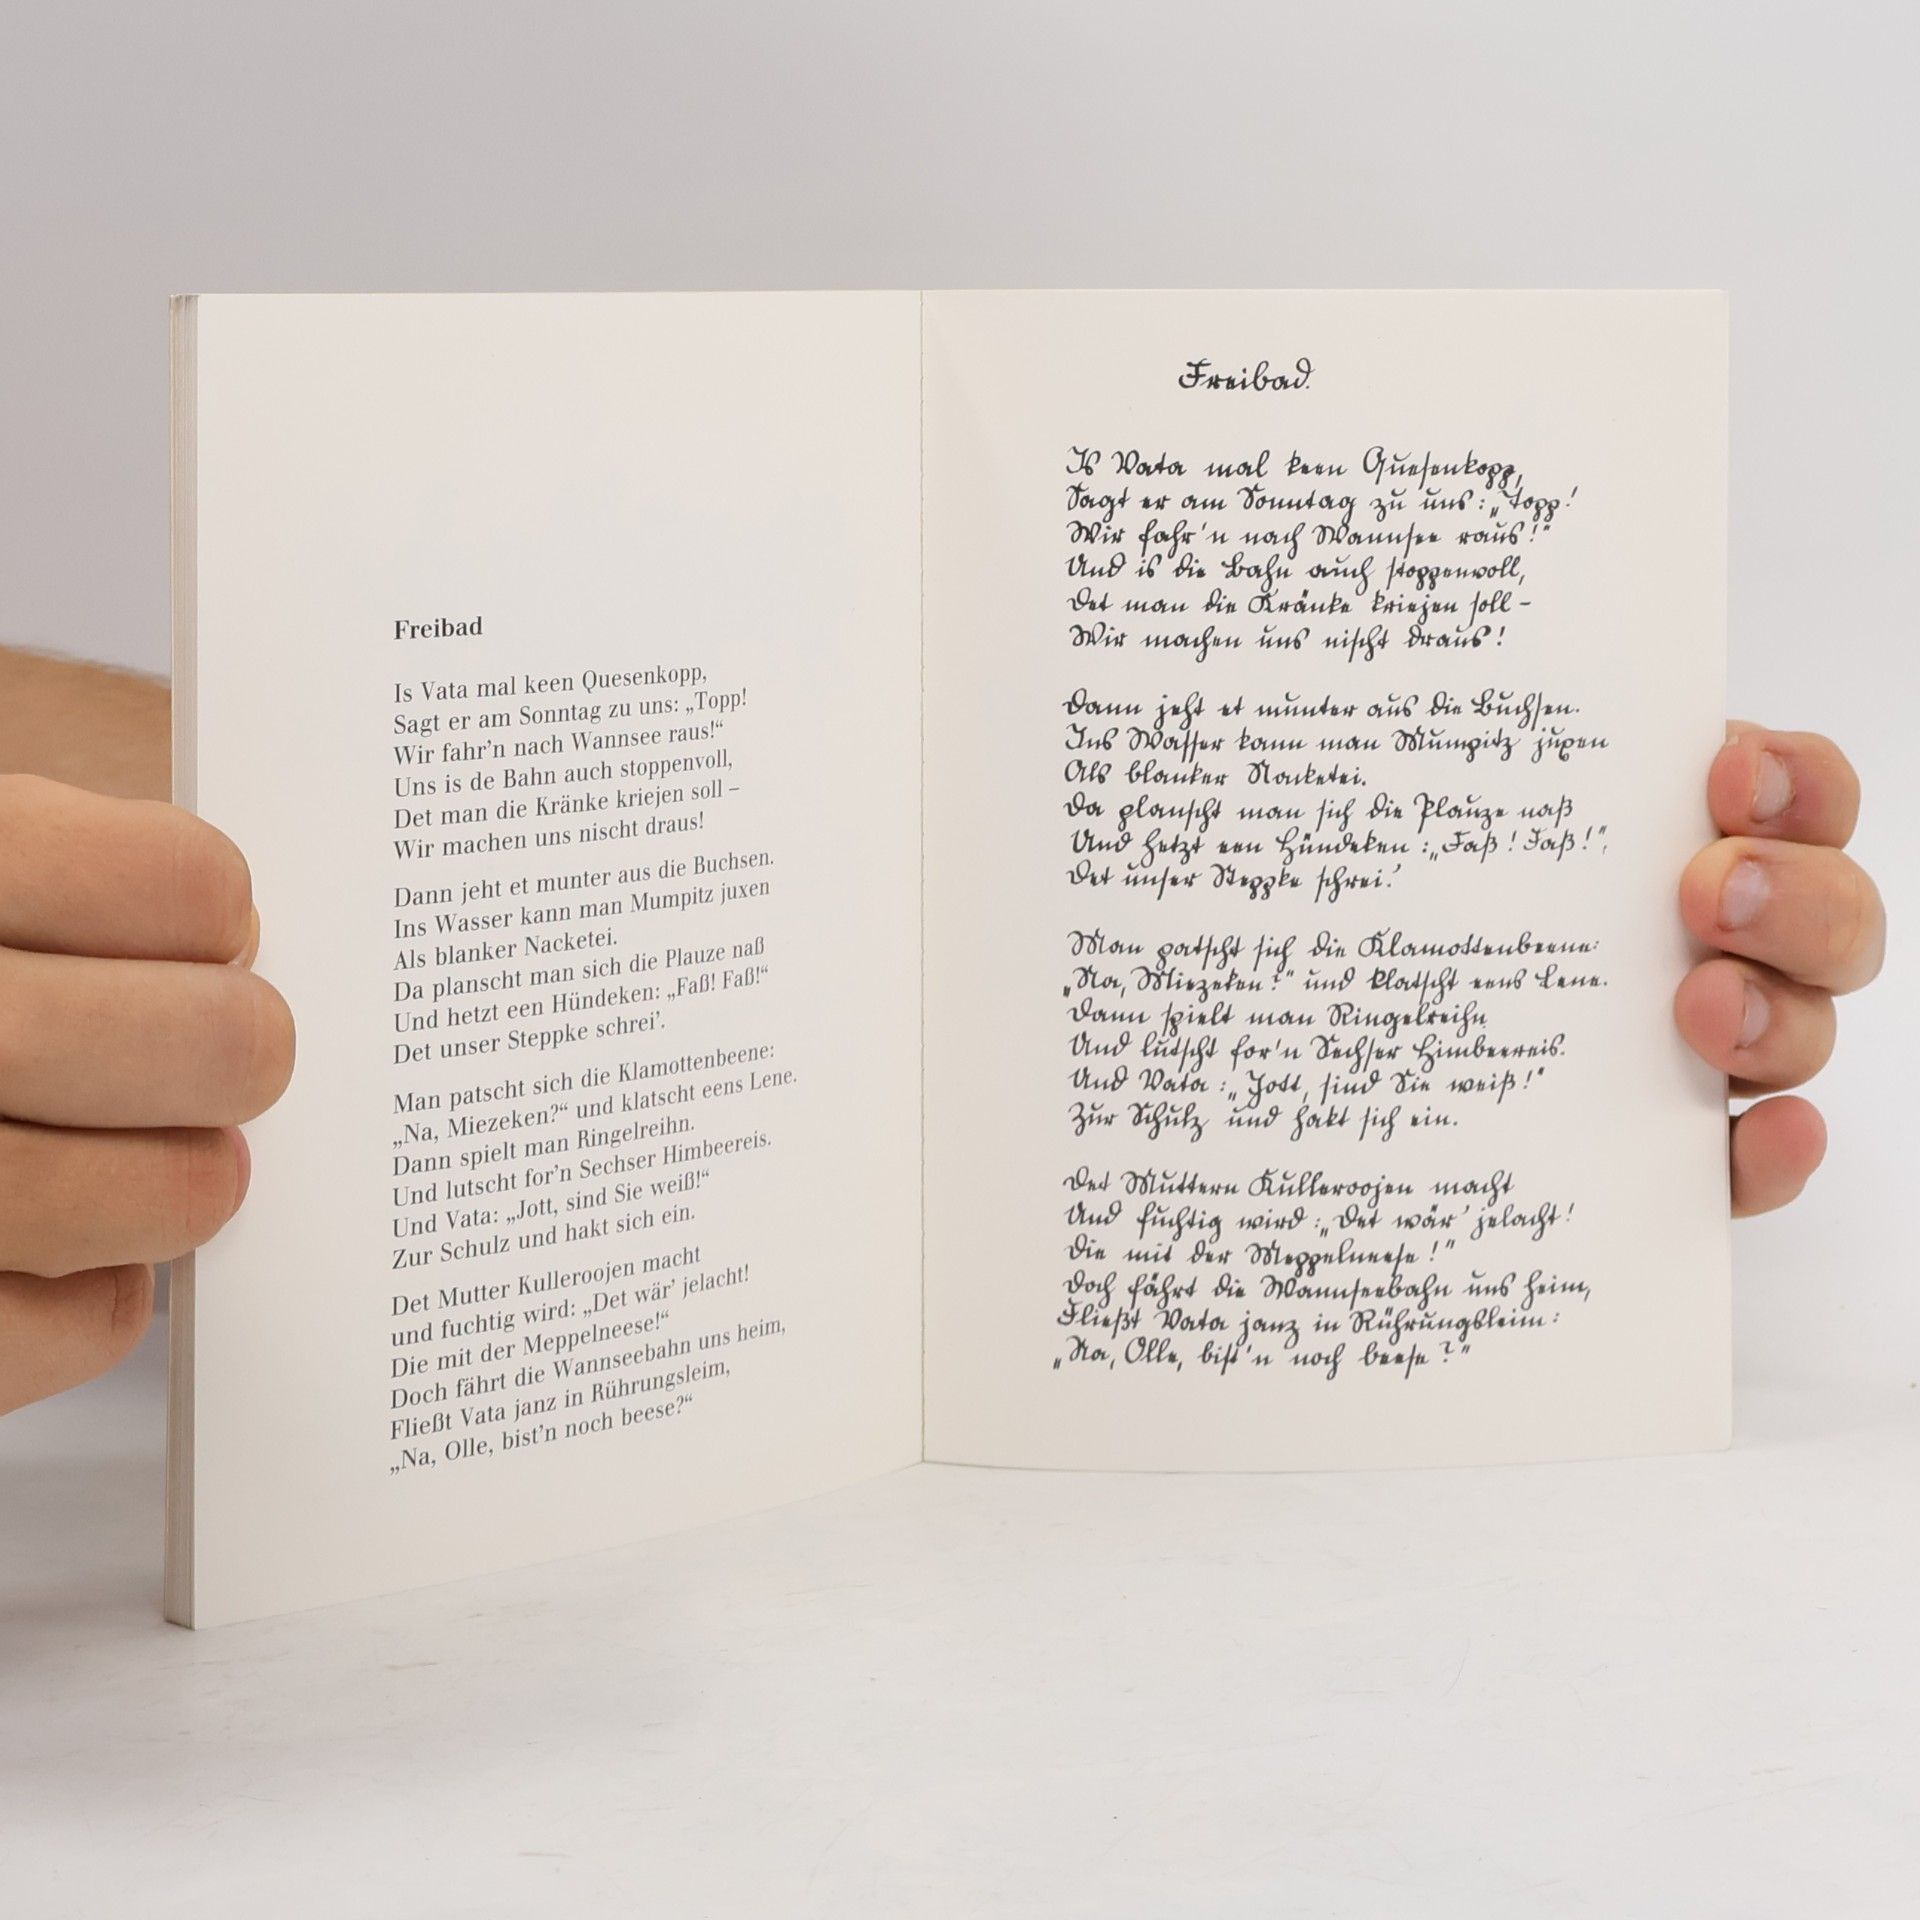 Freibad
Is Vata mal keen Quesenkopp,
Sagt er am Sonntag zu uns: „Topp!
Wir fahr’n nach Wannsee raus!“
Uns is de Bahn auch stoppenvoll,
Det man die Kränke kriejen soll –
Wir machen uns nischt draus!
Dann jeht et munter aus die Buchsen.
Ins Wasser kann man Mumpitz juxen
Als blanker Nacketei.
Da planscht man sich die Plauze naß
Und hetzt een Hündeken: „Faß! Faß!“
Det unser Steppke schrei’.
Man patscht sich die Klamottenbeene:
„Na, Miezeken?“ und klatscht eens Lene.
Dann spielt man Ringelreihn.
Und lutscht for’n Sechser Himbeereis.
Und Vata: „Jott, sind Sie weiß!“
Zur Schulz und hakt sich ein.
Det Mutter Kulleroojen macht
und fuchtig wird: „Det wär’ jelacht!
Die mit der Meppelneese!“
Doch fährt die Wannseebahn uns heim,
Fließt Vata janz in Rührungsleim,
„Na, Olle, bist’n noch beese?“
Freibad.
Is Vata mal keen Quesenkopp,
Sagt er am Sonntag zu uns: „Topp!
Wir fahr'n nach Wannsee raus!"
Und is die Bahn auch stoppenvoll,
Det man die Kränke kriejen soll –
Wir machen uns nischt draus!
Dann jeht et munter aus die Buchsen.
Ins Wasser kann man Mumpitz juxen
Als blanker Nacketei.
Da planscht man sich die Plauze naß
Und hetzt een Hündeken: „Faß! Faß!",
Det unser Steppke schrei'.
Man patscht sich die Klamottenbeene:
„Na, Miezeken?" und klatscht eens Lene.
Dann spielt man Ringelreihn
Und lutscht for'n Sechser Himbeereis.
Und Vata: „Jott, sind Sie weiß!"
Zur Schulz und hakt sich ein.
Det Muttern Kulleroojen macht
Und fuchtig wird: „Det wär' jelacht!
Die mit der Meppelneese!"
Doch fährt die Wannseebahn uns heim,
Fließt Vata janz in Rührungsleim:
„Na, Olle, bist'n noch beese?"